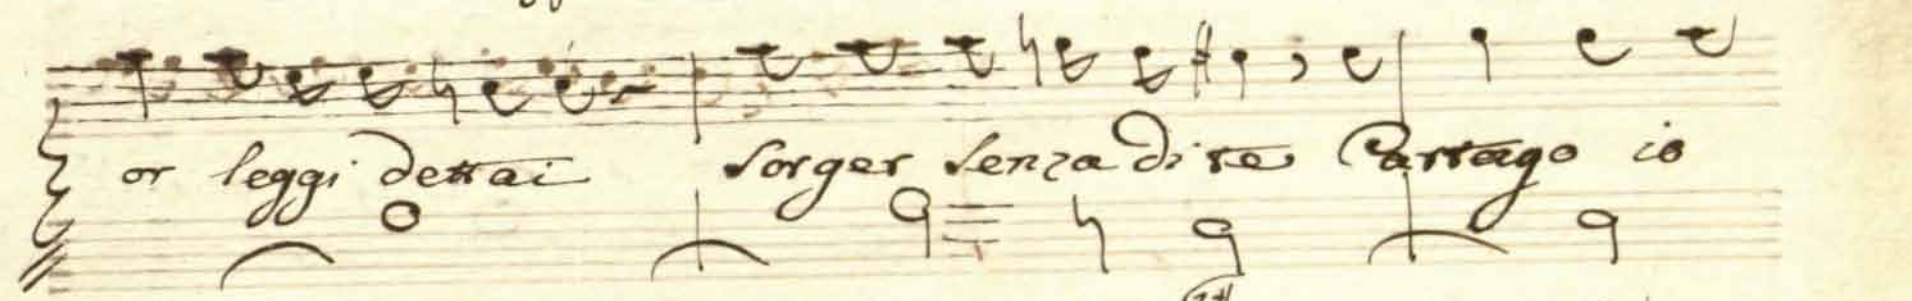 or leggi dettai sorger senza di te Cartago io